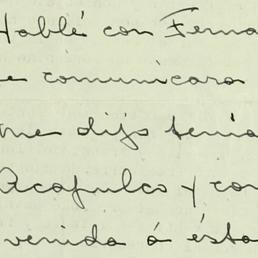 Hablé con Ferna
e comunicara
me dijo tenia
Acapulco y con
venida á ésta